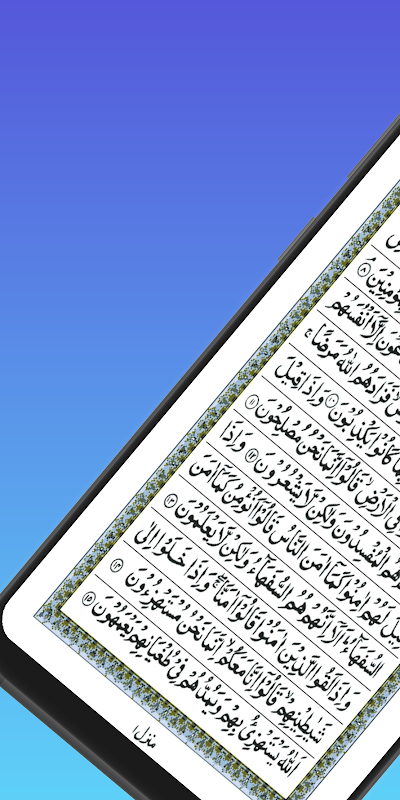 بِمُؤْمِنِيْنَ ۝۸
اِلَّاۤ اَنْفُسَهُمْ
فَزَادَهُمُ اللّٰهُ مَرَضًا ۚ
كَانُوْا يَكْذِبُوْنَ ۝۱۰ وَاِذَا قِيْلَ
فِي الْاَرْضِ ۙ قَالُوْۤا اِنَّمَا نَحْنُ مُصْلِحُوْنَ ۝۱۱
هُمُ الْمُفْسِدُوْنَ وَلٰكِنْ لَّا يَشْعُرُوْنَ ۝۱۲ وَاِذَا
قِيْلَ لَهُمْ اٰمِنُوْا كَمَاۤ اٰمَنَ النَّاسُ قَالُوْۤا اَنُؤْمِنُ كَمَاۤ اٰمَنَ
السُّفَهَآءُ ؕ اَلَاۤ اِنَّهُمْ هُمُ السُّفَهَآءُ وَلٰكِنْ لَّا يَعْلَمُوْنَ ۝۱۳
وَاِذَا لَقُوا الَّذِيْنَ اٰمَنُوْا قَالُوْۤا اٰمَنَّا ۖۚ وَاِذَا خَلَوْا اِلٰى
شَيٰطِيْنِهِمْ ۙ قَالُوْۤا اِنَّا مَعَكُمْ ۙ اِنَّمَا نَحْنُ مُسْتَهْزِءُوْنَ ۝۱۴
اَللّٰهُ يَسْتَهْزِئُ بِهِمْ وَيَمُدُّهُمْ فِيْ طُغْيَانِهِمْ يَعْمَهُوْنَ ۝۱۵
منزل ۱